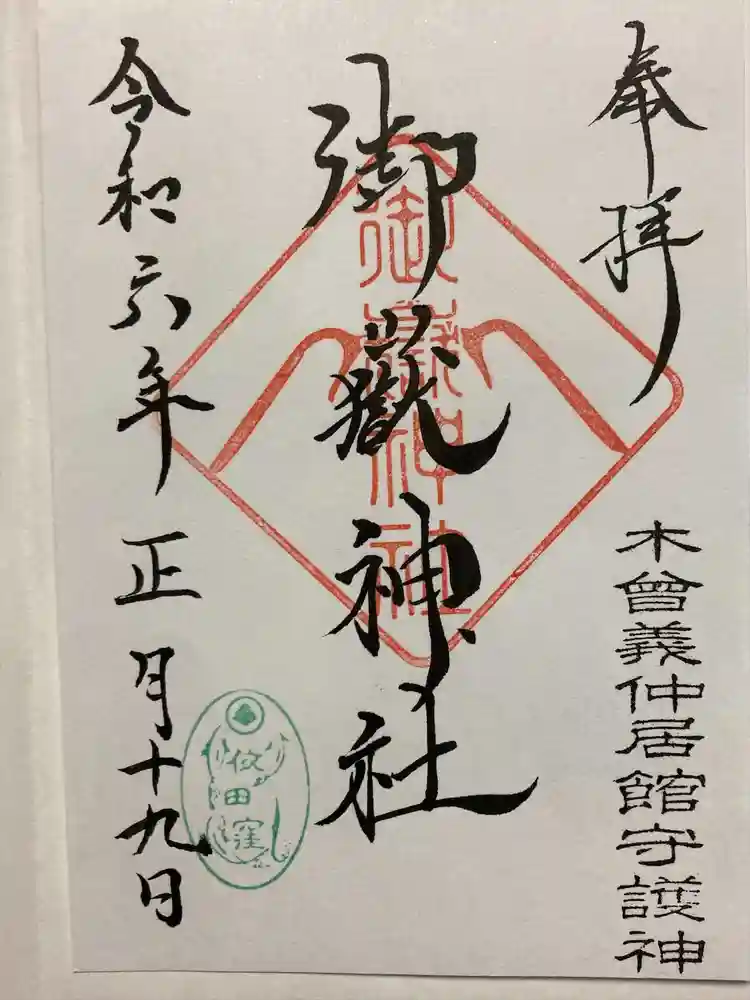 奉拝
木曾義仲居館守護神
御嶽神社
御嶽神社
令和六年正月十九日
田窪